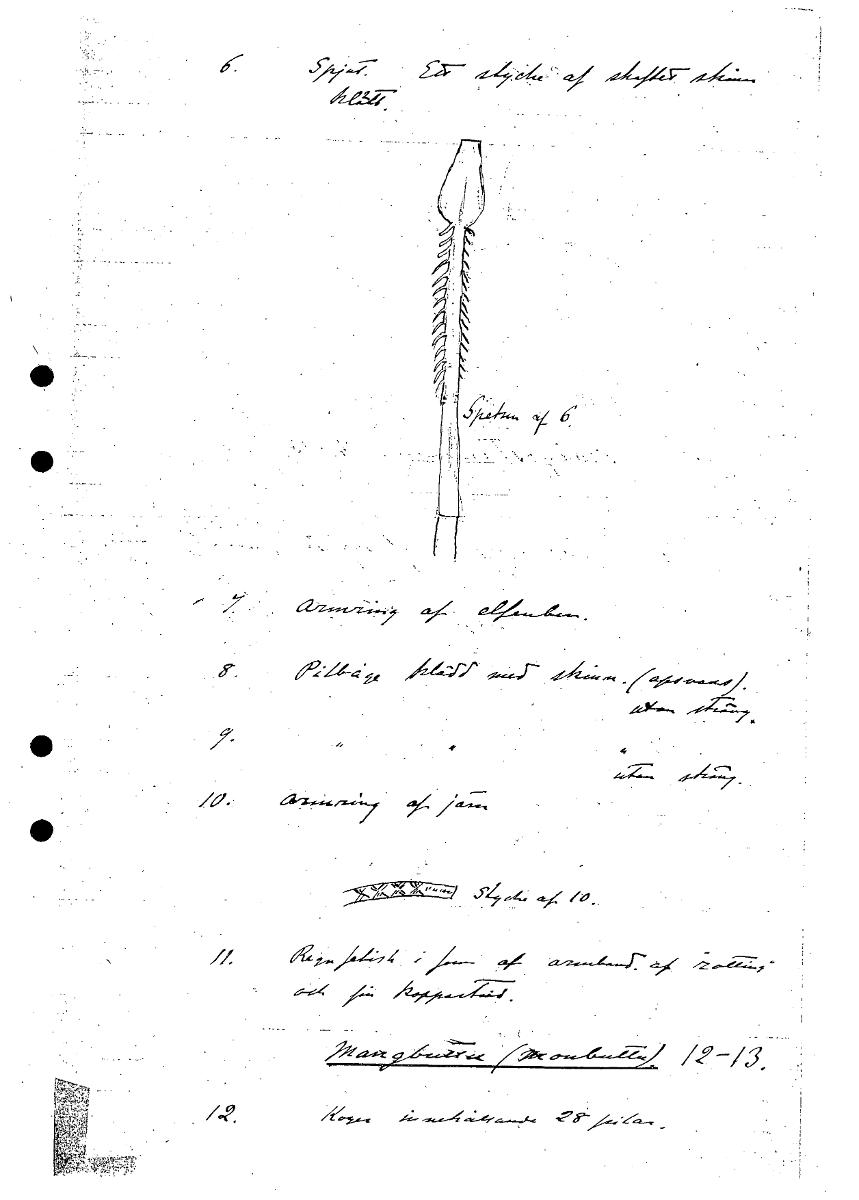 6. Spjut. Ett stycke af skaftet skinn
klädt.
Spetsen af 6.
7. Armring af elfenben.
8. Pilbåge klädd med skinn. (apsvans).
utan sträng.
9. " " "
utan sträng.
10. Armring af järn
Stycke af 10.
11. Regnfetish i form af armband af "rotting"
och fin koppartråd.
Mangbuttu (Monbuttu). 12-13.
12. Koger innehållande 28 pilar.